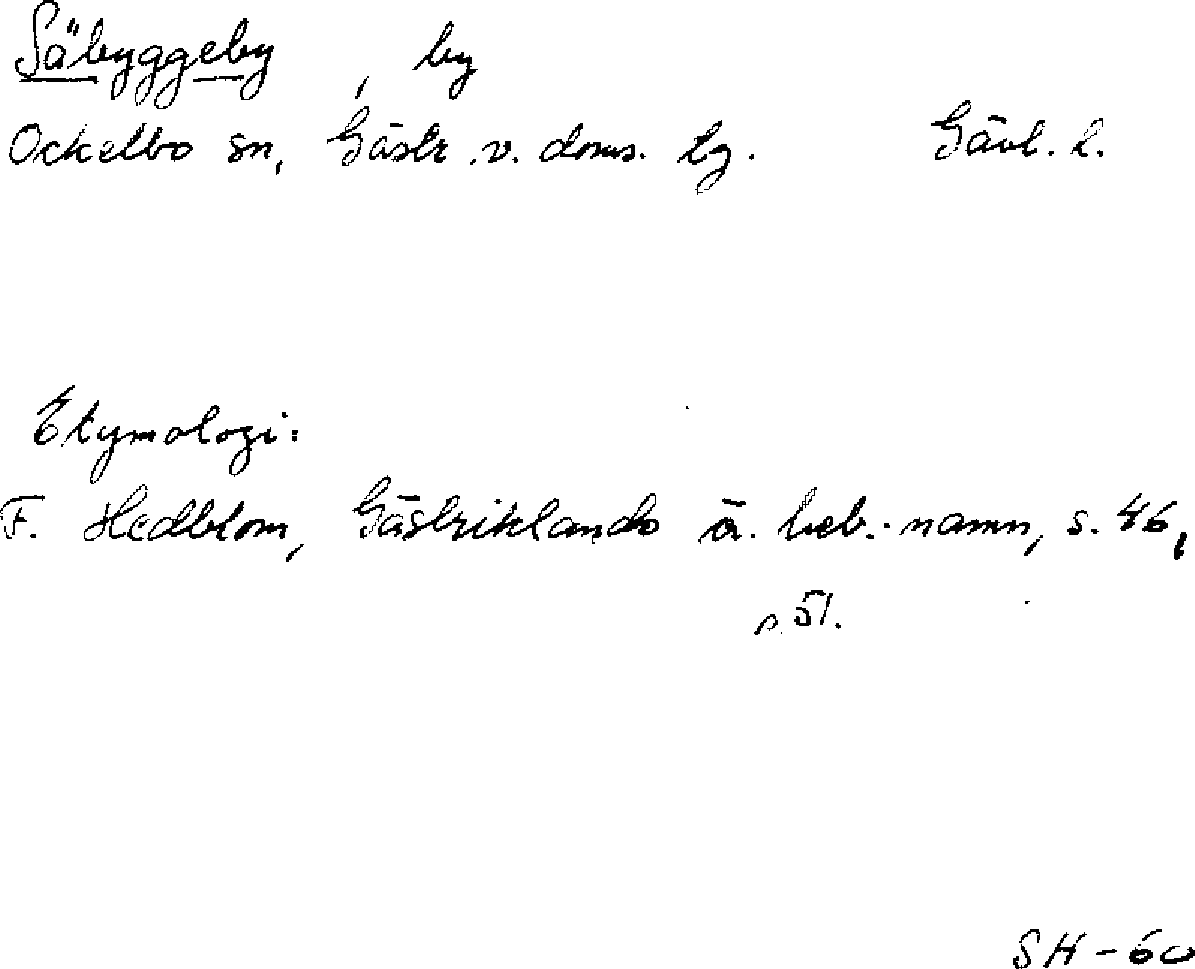 Säbyggeby , by
Ockelbo sn, Gästr. v. doms. tg. Gävl. l.
Etymologi:
F. Hedblom, Gästriklands ä. beb.-namn, s. 46,
s. 51.
SH-60